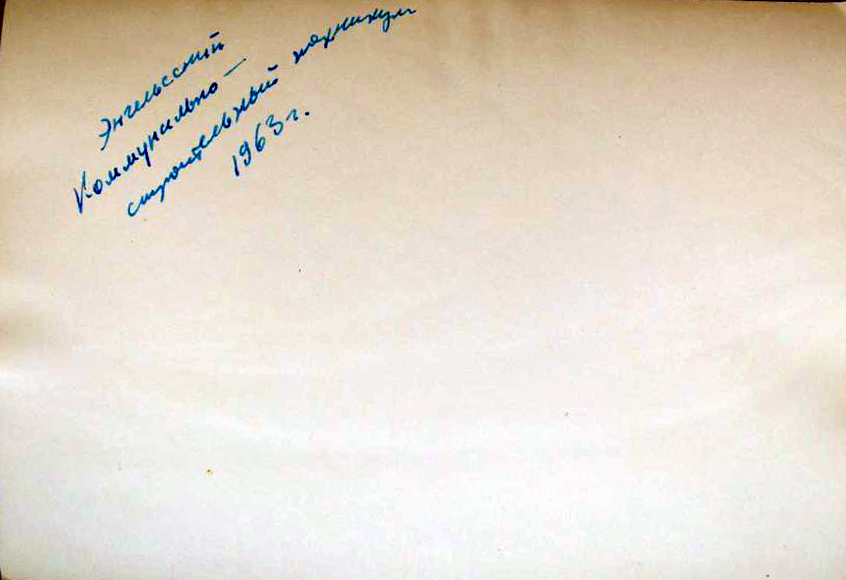 Энгельсский
Коммунально-
строительный техникум
1963 г.